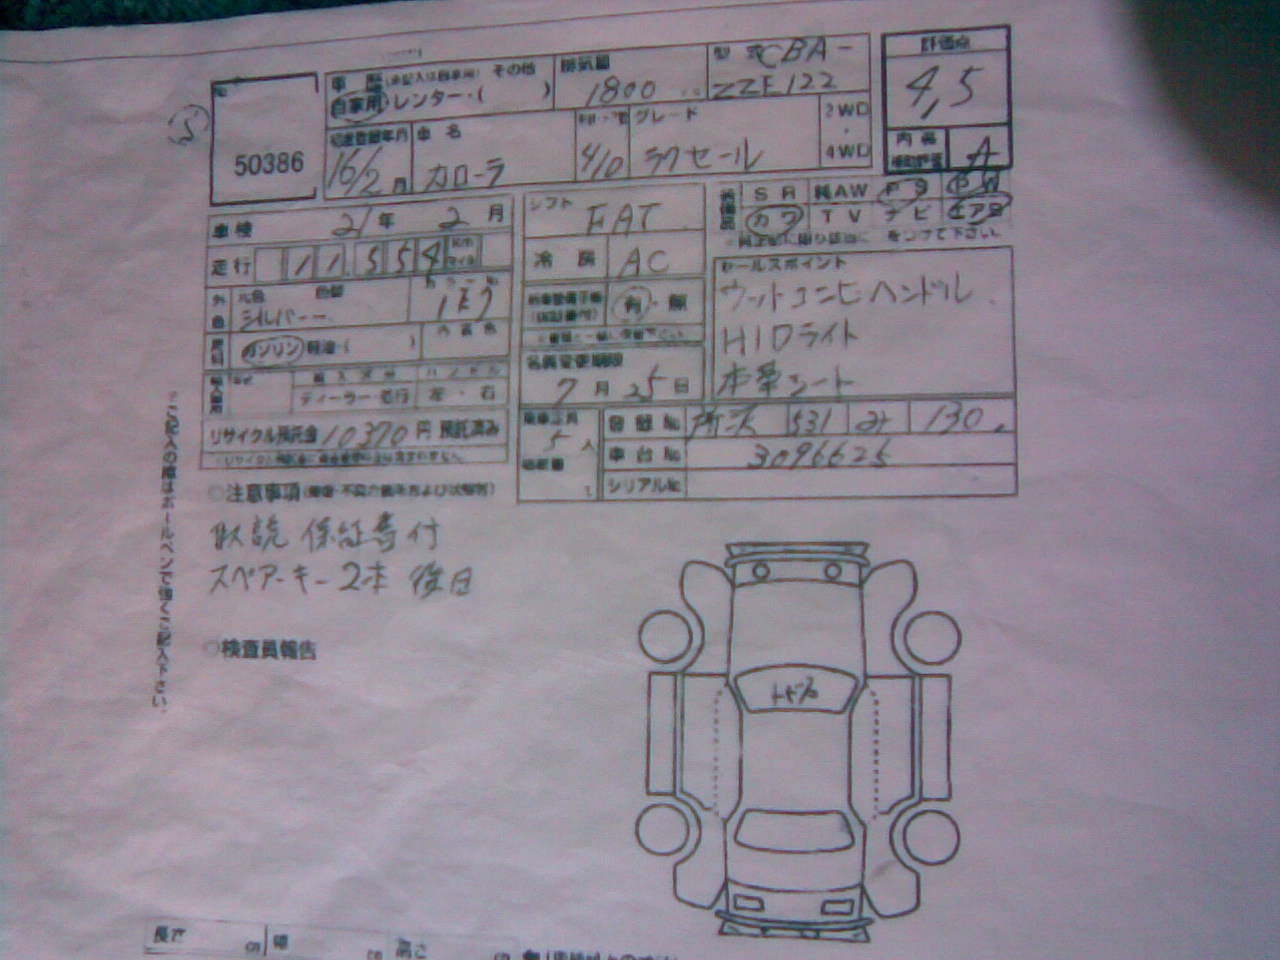 車歴 (未記入は自家用) その他
自家用・レンタ・( )
排気量
1800
型式 CBA-
ZZE122
評価点
4,5
50386
初度登録年月
16/2月
車名
カローラ
4/0
グレード
ラクセール
2WD
・
4WD
内装
A
車検 21年 2月
走行 11,554 Km
シルバー
1E7
ガソリン 軽油・( )
内装色
ディーラー・並行 左・右
リサイクル預託金 10370円 預託済み
シフト FAT
冷房 AC
有・無
名義変更期限
7月25日
S R 純AW P S P W
カワ T V ナビ エアB
セールスポイント
ウットコンビハンドル
HIDライト
本革シート
乗車定員
5人
登録No 所沢 531 み 130
車台No 3096625
シリアルNo
◎注意事項
取説 保証書付
スペアーキー2本 後日
◎検査員報告
※ご記入の際はボールペンで強くご記入下さい。
長さ 幅 高さ